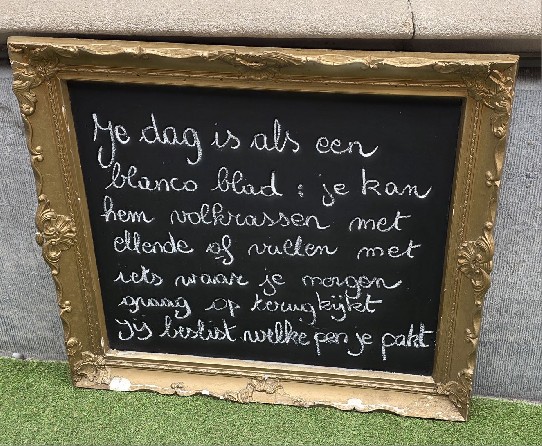 Je dag is als een
blanco blad : je kan
hem volkrassen met
ellende of vullen met
iets waar je morgen
graag op terugkijkt
Jij beslist welke pen je pakt